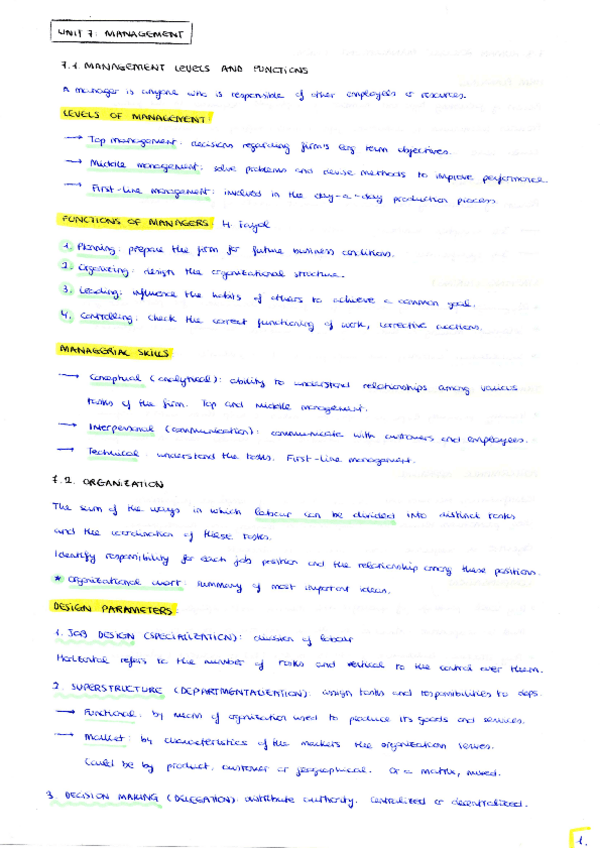 UNIT 7: MANAGEMENT
7.1. MANAGEMENT LEVELS AND FUNCTIONS
A manager is anyone who is responsible of other employees or resources.
LEVELS OF MANAGEMENT:
→ Top management: decisions regarding firm's long term objectives.
→ Middle management: solve problems and devise methods to improve performance.
→ First-line management: involved in the day-a-day production process.
FUNCTIONS OF MANAGERS: H. Fayol
1. Planning: prepare the firm for future business conditions.
2. Organizing: design the organizational structure.
3. Leading: influence the habits of others to achieve a common goal.
4. Controlling: check the correct functioning of work, corrective actions.
MANAGERIAL SKILLS
→ Conceptual (analytical): ability to understand relationships among various
tasks of the firm. Top and middle management.
→ Interpersonal (communication): communicate with customers and employees.
→ Technical: understand the tasks. First-line management.
7.2. ORGANIZATION
The sum of the ways in which labour can be divided into distinct tasks
and the coordination of these tasks.
Identify responsibility for each job position and the relationship among these positions.
* Organizational chart: summary of most important ideas.
DESIGN PARAMETERS:
1. JOB DESIGN (SPECIALIZATION): division of labour
Horizontal refers to the number of tasks and vertical to the control over them.
2. SUPERSTRUCTURE (DEPARTMENTALIZATION): assign tasks and responsibilities to deps.
→ Functional: by means of organization used to produce its goods and services.
→ Market: by characteristics of the markets the organization serves.
Could be by product, customer or geographical. Or a matrix, mixed.
3. DECISION MAKING (DELEGATION): distribute authority. Centralized or decentralized.
1.